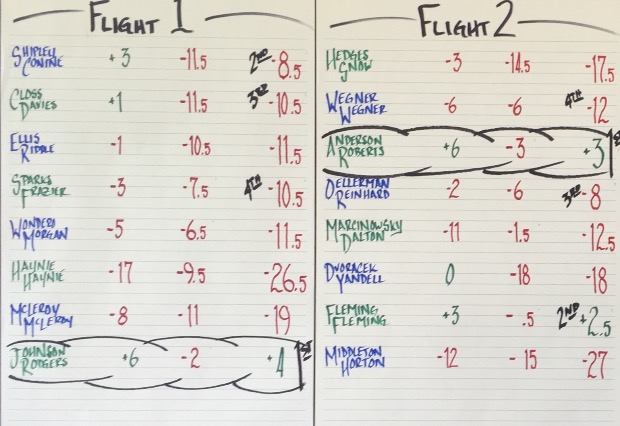 FLIGHT 1
SHIPLEY CONINE +3 -11.5 2ND -8.5
CLOSS DAVIES +1 -11.5 3RD -10.5
ELLIS RIDDLE -1 -10.5 -11.5
SPARKS FRAZIER -3 -7.5 4TH -10.5
WONDERS MORGAN -5 -6.5 -11.5
HAYNIE HAYNIE -17 -9.5 -26.5
MCLEROY MCLEROY -8 -11 -19
JOHNSON RODGERS +6 -2 +4 1ST
FLIGHT 2
HEDGES GNOW -3 -14.5 -17.5
WEGNER WEGNER -6 -6 4TH -12
ANDERSON ROBERTS +6 -3 +3
OELLERMAN REINHARD -2 -6 3RD -8
MARCINOWSKY DALTON -11 -1.5 -12.5
DVORACEK YANDELL 0 -18 -18
FLEMING FLEMING +3 -.5 2ND +2.5
MIDDLETON HORTON -12 -15 -27